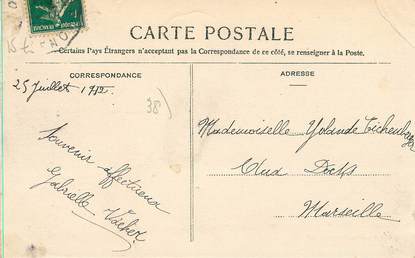 CARTE POSTALE
Certains Pays Étrangers n'acceptant pas la Correspondance de ce côté, se renseigner à la Poste.
CORRESPONDANCE
ADRESSE
25 Juillet 1912.
38)
Souvenir affectueux
Gabrielle Vacher
Mademoiselle Yolande
Aux Docks
Marseille